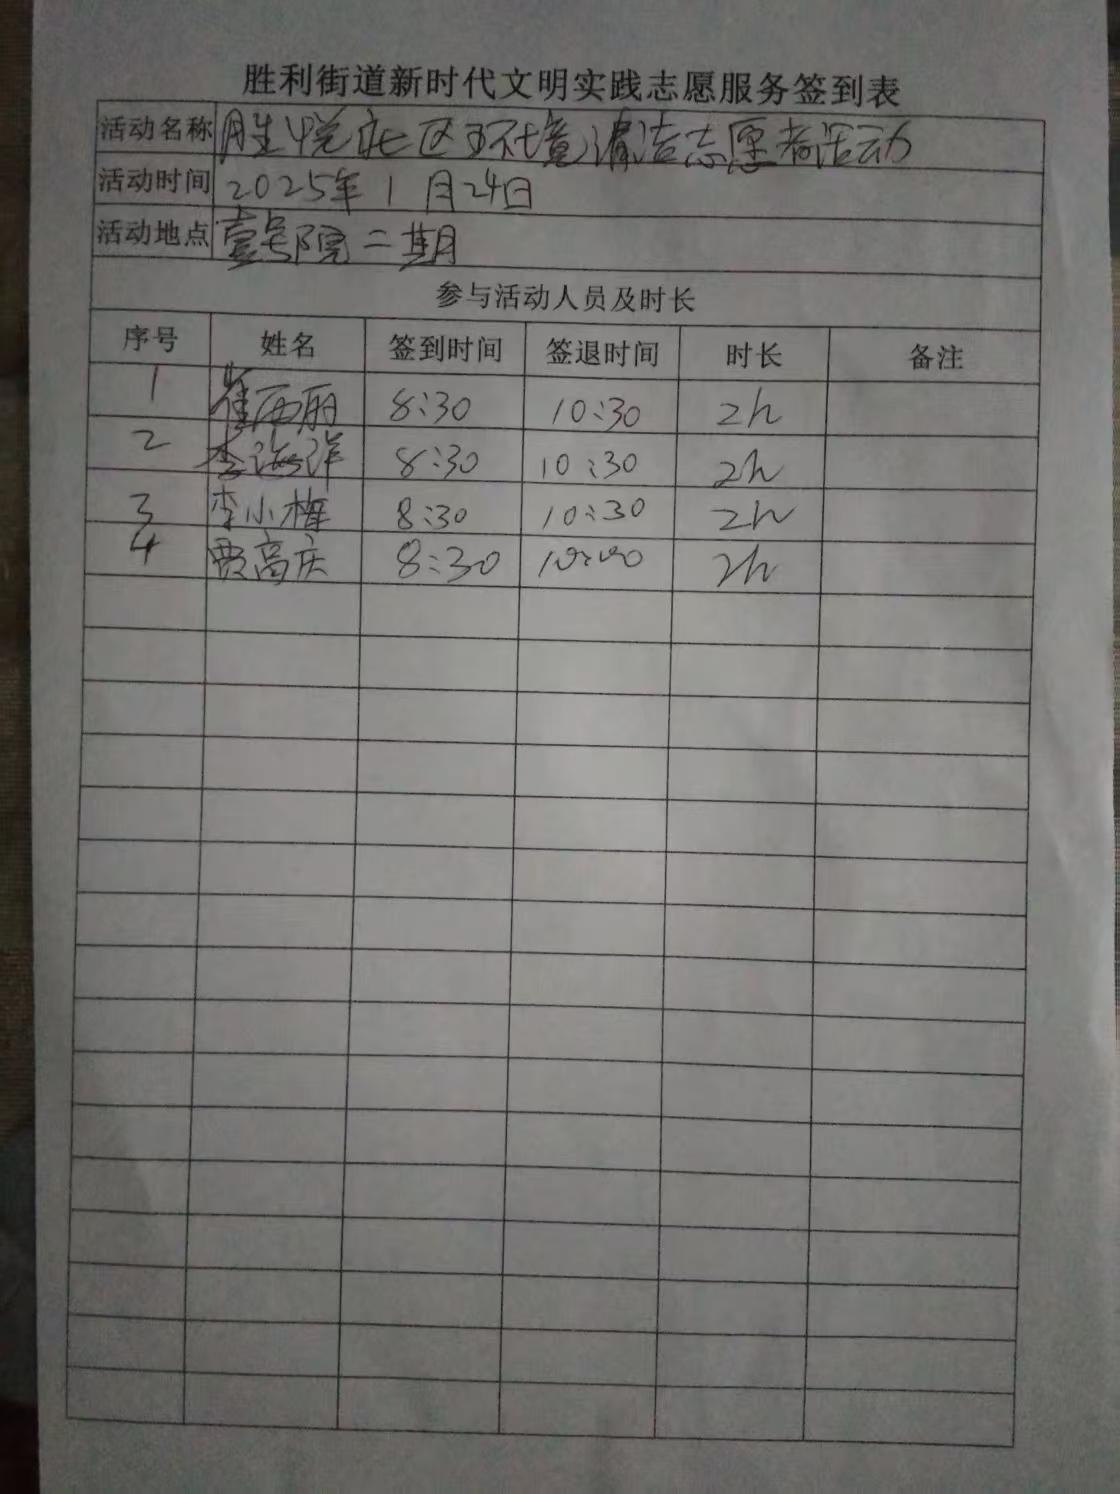 胜利街道新时代文明实践志愿服务签到表
活动名称 胜悦社区环境清洁志愿者活动
活动时间 2025年1月24日
活动地点 壹号院二期
参与活动人员及时长
序号 姓名 签到时间 签退时间 时长 备注
1 崔西丽 8:30 10:30 2h
2 李海洋 8:30 10:30 2h
3 李小梅 8:30 10:30 2h
4 贾高庆 8:30 2h